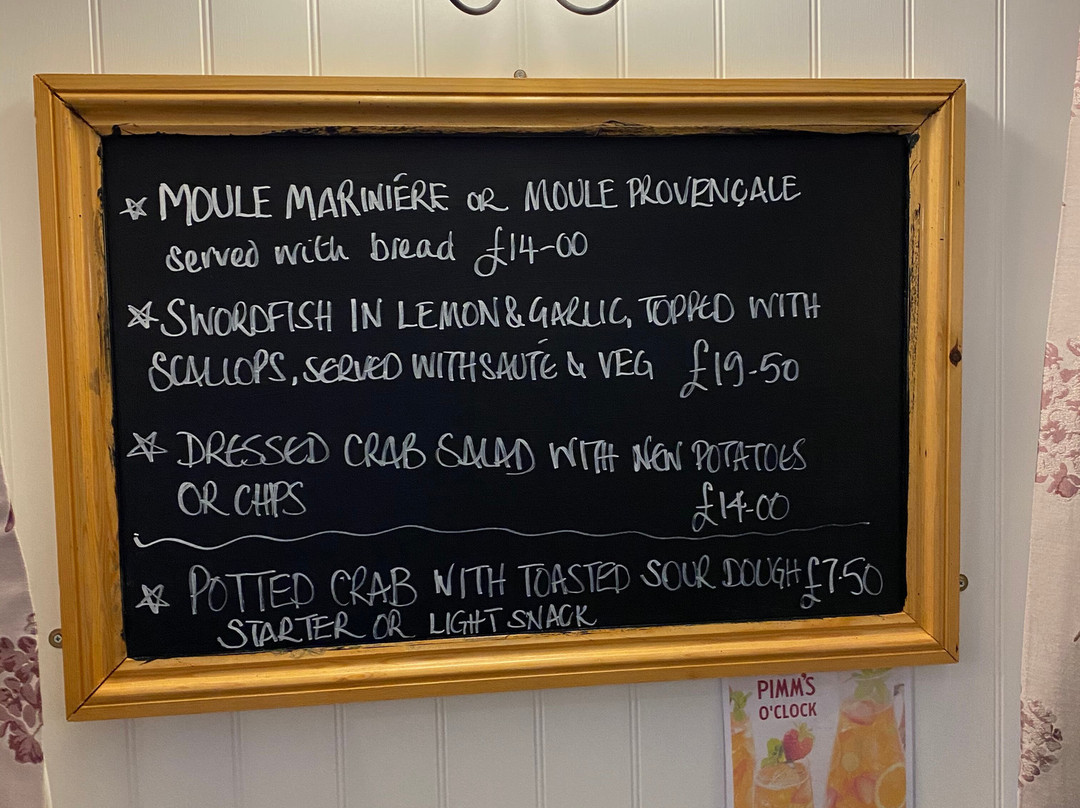 ☆ MOULE MARINIÉRE OR MOULE PROVENÇALE
served with bread £14-00
☆ SWORDFISH IN LEMON & GARLIC, TOPPED WITH
SCALLOPS, SERVED WITH SAUTÉ & VEG £19-50
☆ DRESSED CRAB SALAD WITH NEW POTATOES
OR CHIPS £14-00
☆ POTTED CRAB WITH TOASTED SOUR DOUGH £7.50
STARTER OR LIGHT SNACK
PIMM'S
O'CLOCK